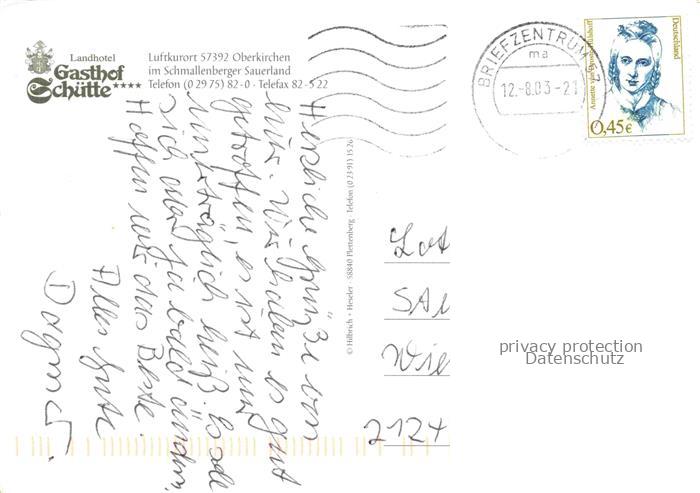 Landhotel
Gasthof
Schütte****
Luftkurort 57392 Oberkirchen
im Schmallenberger Sauerland
Telefon (0 29 75) 82-0 · Telefax 82-5 22
BRIEFZENTRUM
ma
12.-8.03-21
Annette von Droste-Hülshoff
Deutschland
0,45€
Herzliche Grüße von
hier. Wir haben es gut
getroffen, es ist nur
unerträglich heiß. Es soll
sich aber ja bald ändern.
Hoffen wir das Beste.
Alles Gute
Dagmar.
© Hilbrich + Heseler · 58840 Plettenberg · Telefon (0 23 91) 15 26
Lot
SAu
Wie
2124
privacy protection
Datenschutz